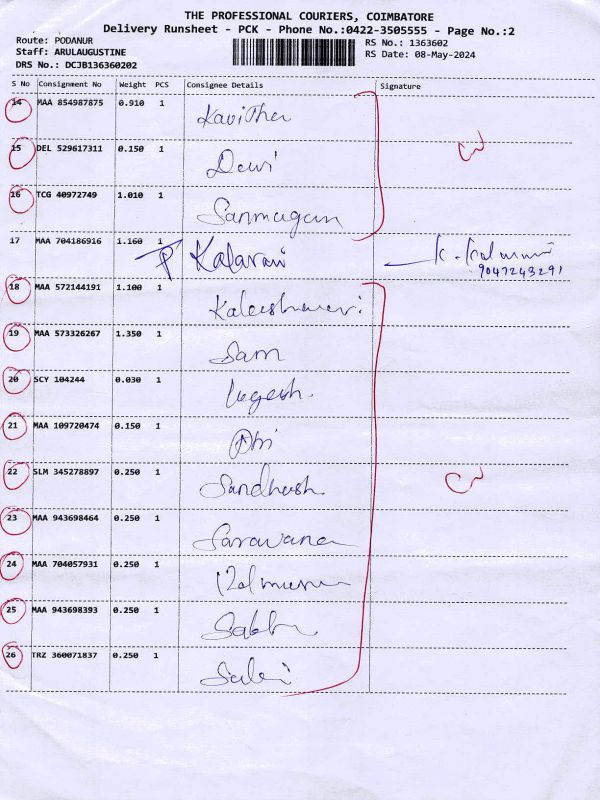 THE PROFESSIONAL COURIERS, COIMBATORE
Delivery Runsheet - PCK - Phone No.:0422-3505555 - Page No.:2
Route: PODANUR
RS No.: 1363602
Staff: ARULAUGUSTINE
RS Date: 08-May-2024
DRS No.: DCJB136360202
S No Consignment No Weight PCS Consignee Details Signature
14 MAA 854987875 0.910 1 Kavitha
15 DEL 529617311 0.150 1 Devi
16 TCG 40972749 1.010 1 Sanmugam
17 MAA 704186916 1.160 1 Kalarani 9047243291
18 MAA 572144191 1.100 1 Kaleeshwari
19 MAA 573326267 1.350 1 Sam
20 SCY 104244 0.030 1
21 MAA 109720474 0.150 1
22 SLM 345278897 0.250 1 Sandhosh
23 MAA 943698464 0.250 1 Saravana
24 MAA 704057931 0.250 1
25 MAA 943698393 0.250 1
26 TRZ 360071837 0.250 1